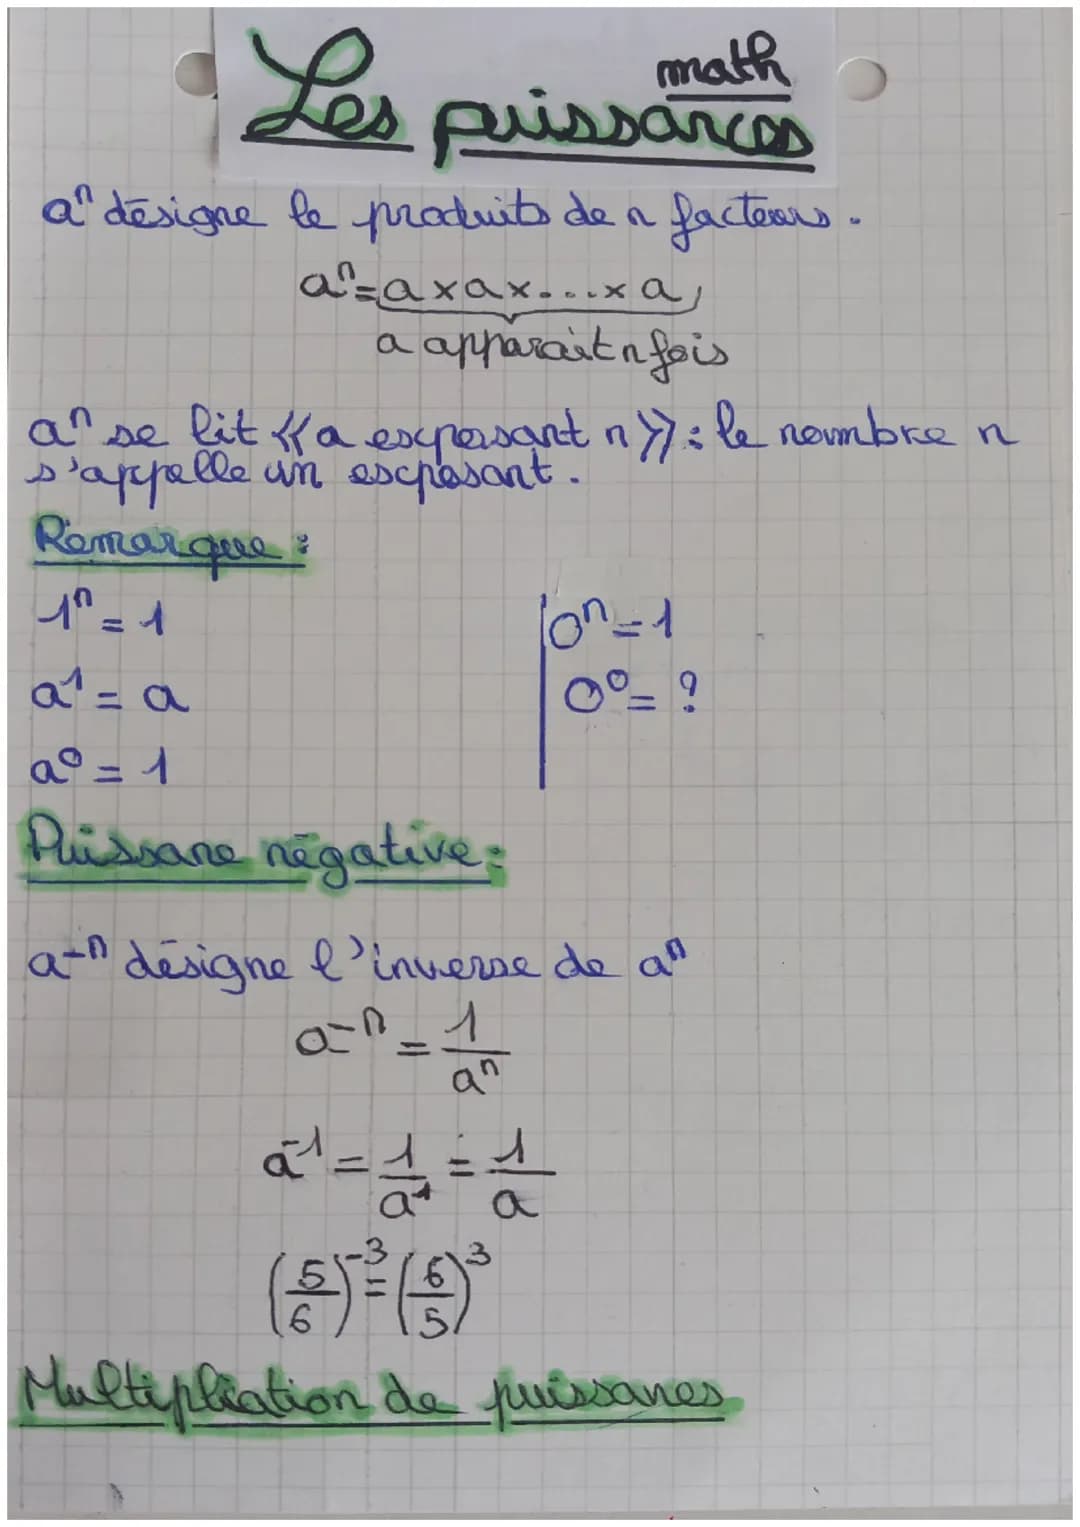 math
Les puissances
aⁿ désigne le produits de n facteurs.
aⁿ = a × a × ... × a
a apparait n fois
aⁿ se lit « a exposant n » : le nombre n
s'appelle un exposant.
Remarque :
1ⁿ = 1
a¹ = a
a⁰ = 1
0ⁿ = 1
0⁰ = ?
Puissane négative :
a⁻ⁿ désigne l'inverse de aⁿ
a⁻ⁿ = 1/aⁿ
a⁻¹ = 1/a¹ = 1/a
(5/6)⁻³ = (6/5)³
Multipliation de puissanes